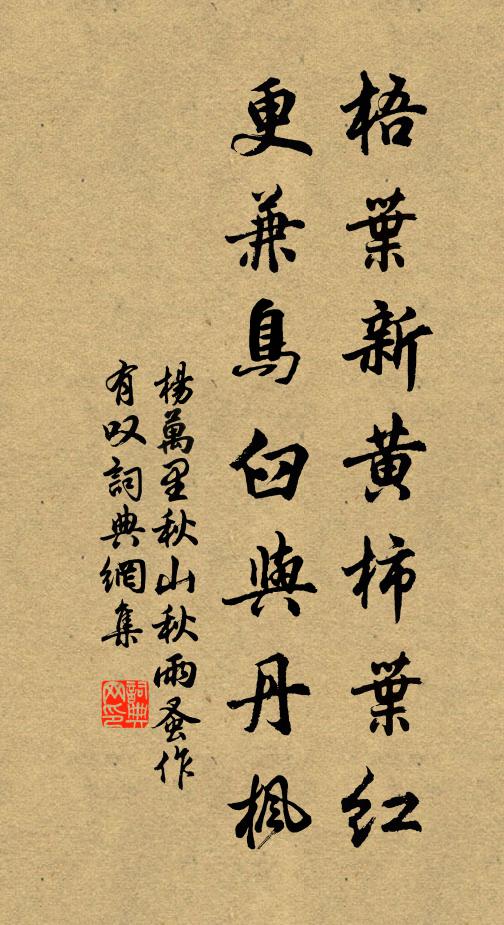 梧葉新黄柿葉紅
更兼烏臼與丹楓
楊萬里秋山秋雨蚤作
有叹詞典網集
詞典网印